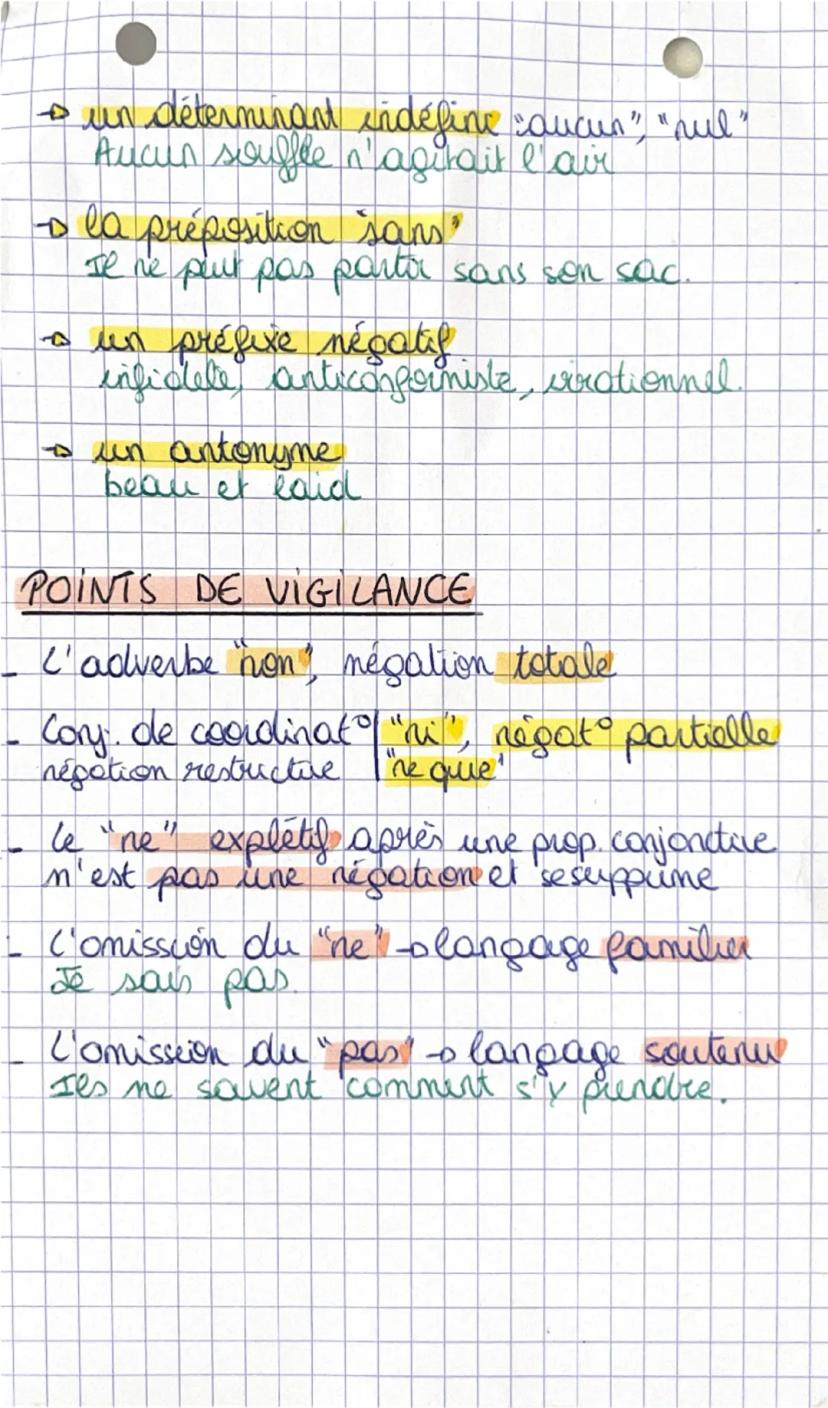 → un déterminant indéfini "aucun", "nul"
Aucun souffle n'agitait l'air
→ la préposition "sans"
Il ne peut pas partir sans son sac.
→ un préfixe négatif
infidèle, anticonformiste, irrationnel.
→ un antonyme
beau et laid
POINTS DE VIGILANCE
- L'adverbe "non", négation totale
- Conj. de coordinat° | "ni", négat° partielle
négation restructive | "ne que"
- Le "ne" explétif après une prop. conjonctive
n'est pas une négation et se suppume
- L'omission du "ne" → langage familier
Je sais pas.
- L'omission du "pas" → langage soutenu
Ils ne savent comment s'y prendre.